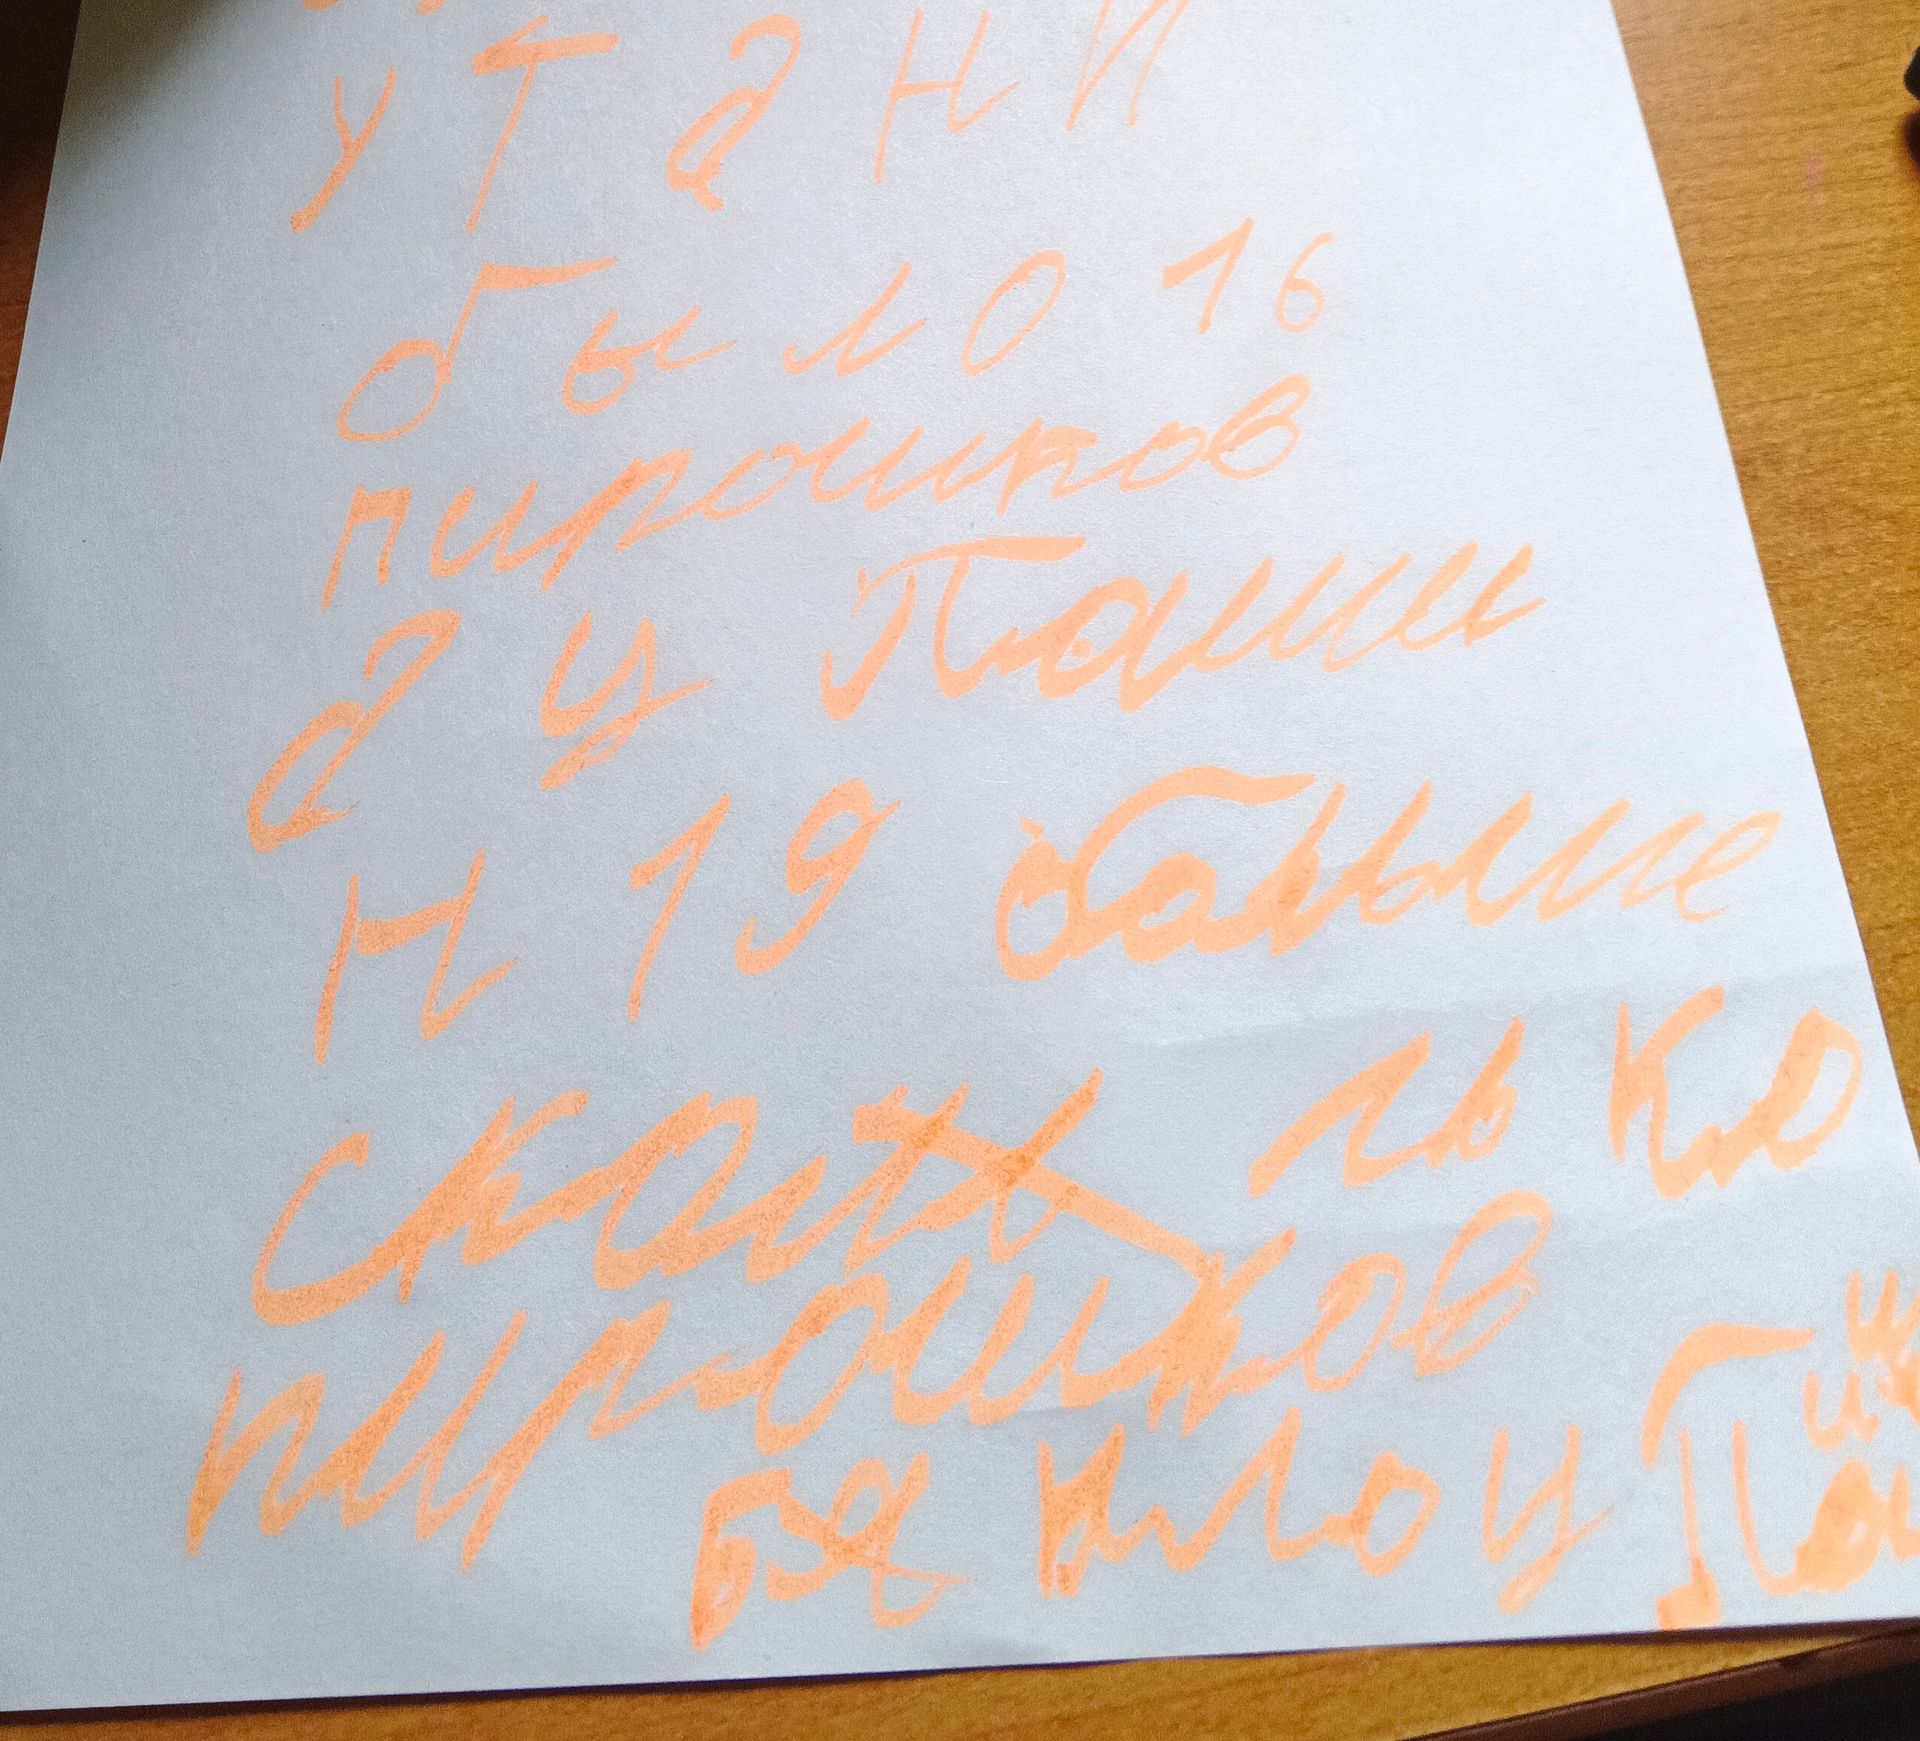 у Тани
было 16
пирошков
а у Паши
н 19 больше
сколь лько
пирошков
было у Паши